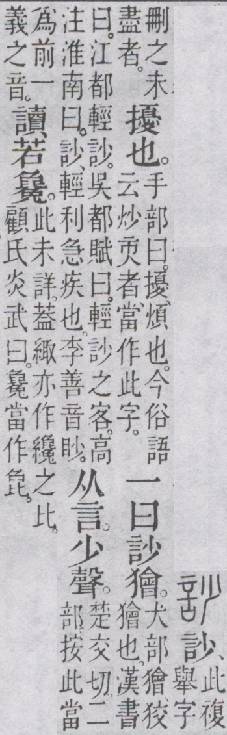 訬 訬、此複舉字
刪之未盡者。擾也。手部曰。擾、煩也。今俗語云炒者、當作此字。一曰訬獪。犬部獪狡獪也。漢書
曰。江都輕訬。吳都賦曰。輕訬之客。高注淮南曰。訬、輕利急疾也。李善音眇。从言。少聲。楚交切。二部。按此當
爲前一義之音。讀若毚。此未詳。葢緅亦作纔之比。顧氏炎武曰。毚當作㲋。